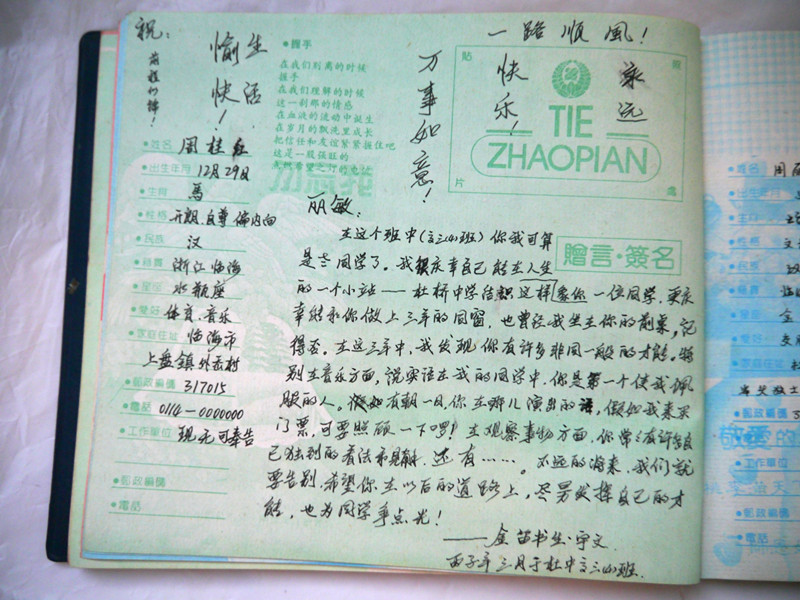 祝：
前程似锦！
愉快！
生活
一路顺風！
万事如意！
永远
快乐！
貼
照
片
處
TIE
ZHAOPIAN
•握手
在我们别离的时候
握手
在我们理解的时候
这一刹那的情感
在血液的流动中诞生
在岁月的飘洗里成长
把信任和友谊紧紧握住吧
这是一段强旺的
•姓名 周桂红
•出生年月 12月29日
•生肖 馬
•性格 开朗.自尊.偏内向
•民族 汉
•籍貫 浙江临海
•星座 水瓶座
•愛好 体育.音乐
•家庭在址 临海市
上盘鎮
•郵政編碼 317015
•電話 0114-0000000
•工作單位 现无可奉告
•郵政編碼
•電話
贈言·簽名
丽敏：
在这个班中（高三(4)班）你我可算
是老同学了。我很庆幸自己能在人生
的一个小站——杜桥中学结识这样象你一位同学，更庆
幸能和你做上三年的同窗，也曾经我坐在你的前桌，记
得否。在这三年中，我发现你有许多非同一般的才能。特
别在音乐方面，说实话在我的同学中，你是第一个使我佩
服的人。假如有朝一日，你在哪儿演出的话，假如我来买
门票，可要照顾一下啰！在观察事物方面，你常常有许多自
己独到的看法和见解，还有……。不远的将来，我们就
要告别，希望你在以后的道路上，尽男发挥自己的才
能，也为同学争点光！
——金笛书生·宇文
丙子年三月于杜中高三(4)班.